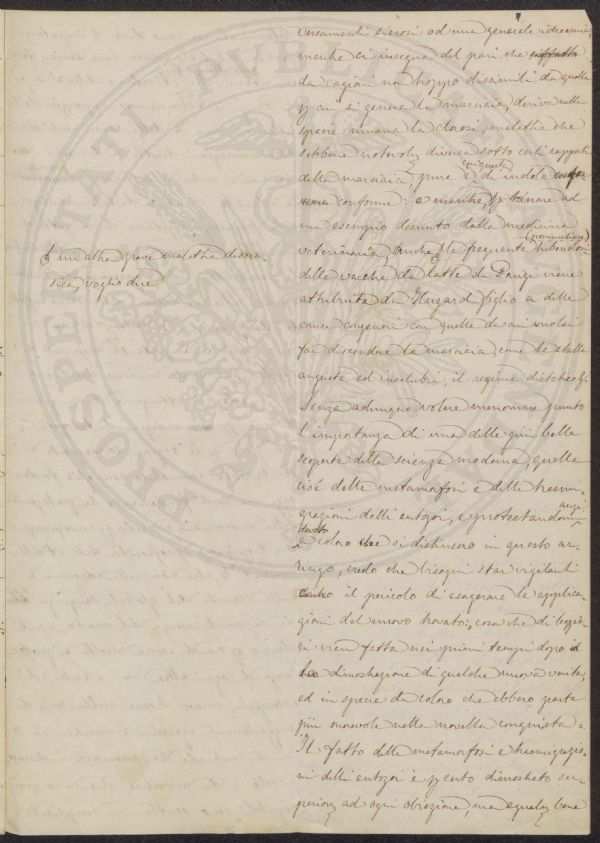 versamenti sierosi od una generale idroemia,
mentre ci insegna del pari che
da cagioni non troppo dissimili da quelle
p cui si genera la marciaia, deriva nella
specie umana la clorosi, malattia che
sebbene notevol diversa sotto certi rapporti
dalla marciaia, pure è con questa di indole
conforme: e mentre, p tornare ad
un esempio desunto dalla medicina
veterinaria, anche la frequente (pommelière) tubercolosi
delle vacche da latte di Parigi viene
attribuita da Huzard figlio a delle
cause congeneri con quelle da cui vuolsi
far discendere la marciaia, come le stalle
anguste ed insalubri, il regime dietetico &.
Senza adunque volere menomare punto
l'importanza di una delle più belle
scoperte della scienza moderna, quella
cioè delle metamorfosi e delle trasmi-
grazioni delli entozoi, e protestandomi anzi
devoto a coloro che si distinsero in questo ar-
ringo, credo che bisogni star vigilanti
contro il pericolo di esagerare le applica-
zioni del nuovo trovato: cosa che di leggie-
ri vien fatta nei primi tempi dopo
la dimostrazione di qualche nuova verità,
ed in specie da coloro che ebbero parte
più onorevole nella novella conquista.
Il fatto delle metamorfosi e trasmigrazio-
ni delli entozoi è p certo dimostrato su-
perior ad ogni obiezione, ma egual bene
un altra grave malattia discra
sica, voglio dire
PROSPERITATI PVBLICAE